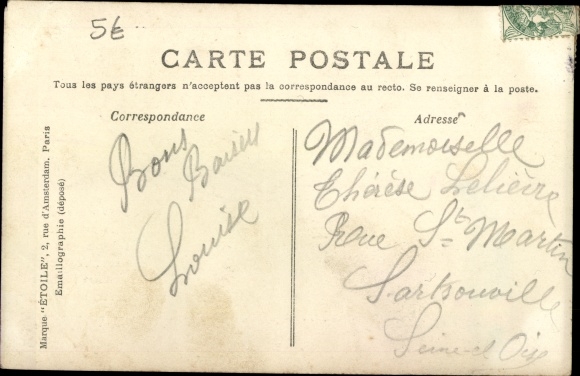 5€
CARTE POSTALE
Tous les pays étrangers n'acceptent pas la correspondance au recto. Se renseigner à la poste.
Correspondance
Bons
Baisers
Louise
Adresse
Mademoiselle
Thérèse Lelièvre
Rue St Martin
Sartrouville
Seine et Oise
Marque "ÉTOILE", 2, rue d'Amsterdam. Paris
Emaillographie (déposé)